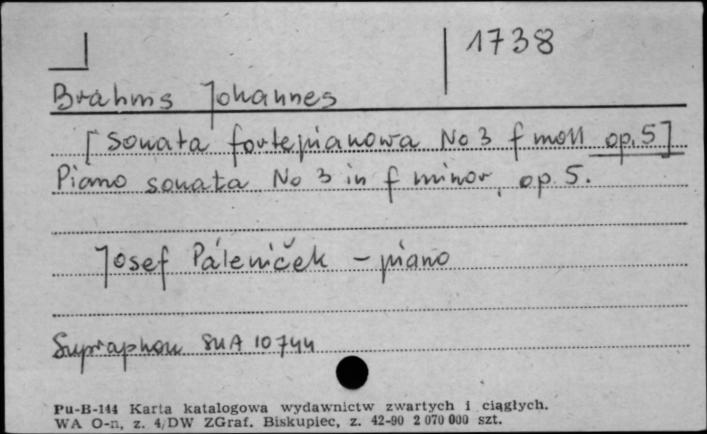 1738
Brahms Johannes
[Sonata fortepianowa No 3 f moll op. 5]
Piano sonata No 3 in f minor, op. 5.
Josef Páleníček – piano
Supraphon SUA 10744
Pu-B-144 Karta katalogowa wydawnictw zwartych i ciągłych.
WA O-n, z. 4/DW ZGraf. Biskupiec, z. 42-90 2 070 000 szt.